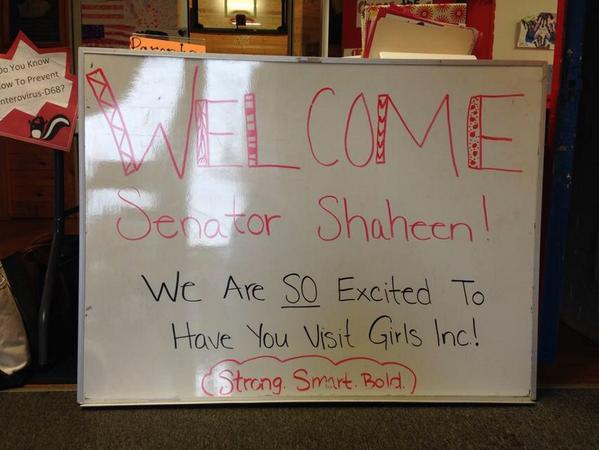 Parents
Do You Know
How To Prevent
Enterovirus-D68?
WELCOME
Senator Shaheen!
We Are SO Excited To
Have You Visit Girls Inc!
(Strong. Smart. Bold.)